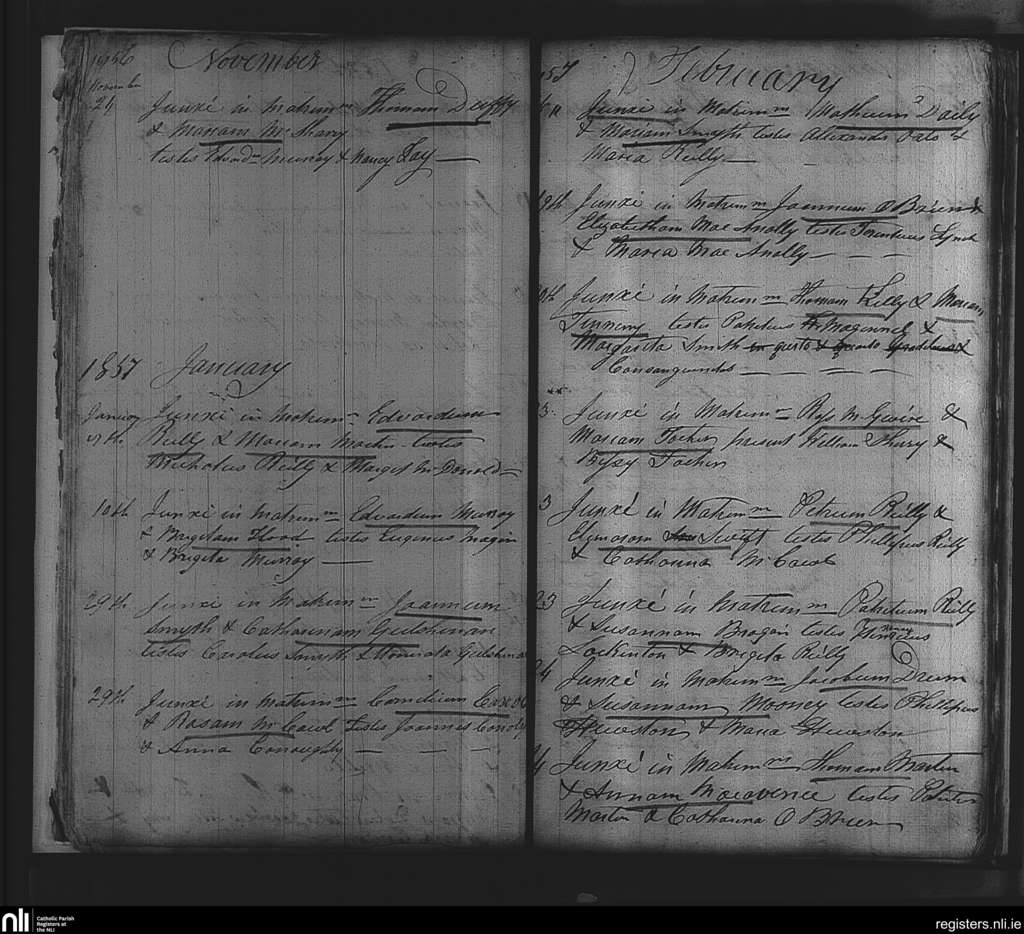 1856 November
November
24 Junxi in matrim m Thomam Duffy
& Mariam McShary
testes Edvard Murray & Nancy Fay
1857 January
January Junxi in matrim Edvardum
7th Reilly & Mariam Martin testes
Nicholas Reilly & Marget McDonald
10th Junxi in matrim m Edvardum Murray
& Brigetam Flood testes Eugenius Magin
& Brigeta Murray
29th Junxi in matrim m Joannem
Smyth & Catharinam Guilshenan
testes Carolus Smyth & Honorata Guilshenan
29th Junxi in matrim m Cornelium
& Rosam McCawl testes Joannes
& Anna Conoughty
57 February
Junxi in Matrim m Matheum Daily
& Mariam Smyth testes Allexander &
Maria Reilly
19th Junxi in Matrim m Joannem O Brien &
Elizabetham Mac Anally testes Terentius Lynch
& Maria Mac Anally
Junxi in matrim m Thomam Kelly & Mariam
Finneny testes Patritius Magennel &
Margarita Smith in quarto & quarto
Consanguinitas
3. Junxi in Matrim Ross McGuire &
Mariam present William &
Bessy
3 Junxi in Matrim m Petrum Reilly &
Swift testes Phillipus Reilly
& Catharina McCawl
23 Junxi in matrim m Patritium Reilly
& Susannam Brogan testes Henricus
Lockinton & Brigeta Reilly
24 Junxi in matrim m Jacobum Drum
& Susannam Mooney testes Phillipus
Hueston & Maria Hueston
4 Junxi in matrim m Thomam Martin
& Annam testes
Martin & Catharina O Brien
nli
Catholic Parish
Registers at
the NLI
registers.nli.ie